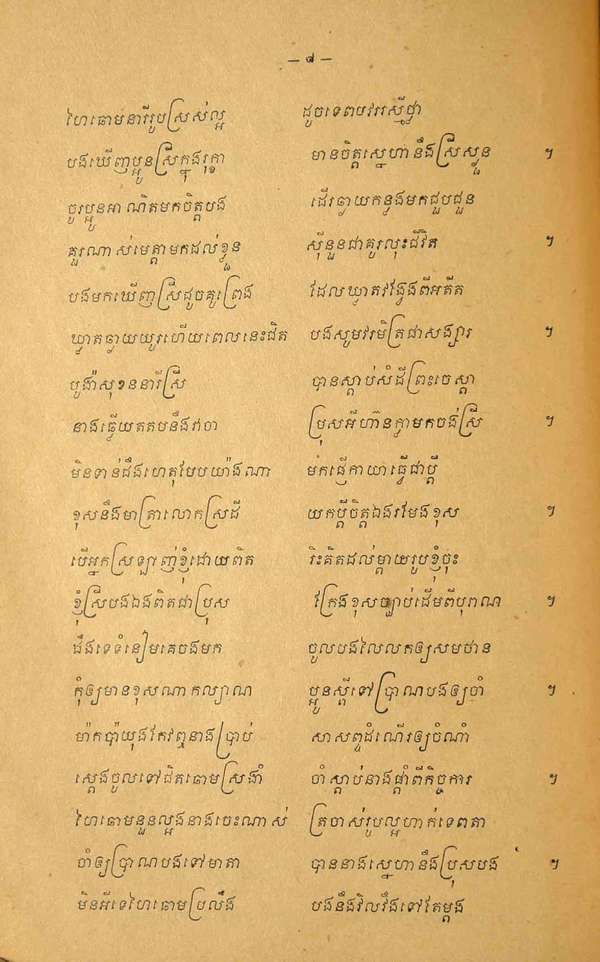 — ៧ —
ហៃឆោមនារីរូបស្រស់ល្អ ដូចទេពបវរអស្មីថ្លា
បងឃើញប្អូនស្រីក្នុងរុក្ខា មានចិត្តស្នេហានឹងស្រីស្ងួន ៗ
ចូរប្អូនអាណិតមកចិត្តបង ដើរឆ្ងាយកន្លងមកជួបជួន
គួរណាស់មេត្តាមកដល់ខ្លួន ស៊ីនួនជាគួរលុះជីវិត ៗ
បងមកឃើញស្រីដូចគូព្រេង ដែលឃ្លាតវង្វេងពីអតីត
ឃ្លាតឆ្ងាយយូរហើយពេលនេះជិត បងសូមវរមិត្រជាសង្សារ ៗ
បូង៉ាសុខននារីស្រី បានស្ដាប់សំដីព្រះចេស្ដា
នាងធ្វើយតតបនឹងវាចា ប្រុសអីហ៊ានក្លាមកចង់ស្រី ៗ
មិនទាន់ដឹងហេតុបែបយ៉ាងណា មកផ្ញើកាយាធ្វើជាប្ដី
ខុសនឹងមាត្រាលោកស្រដី យកប្ដីចិត្តឯងរមែងខុស ៗ
បើអ្នកស្រឡាញ់ខ្ញុំដោយពិត រិះគិតដល់ម្ដាយរូបខ្ញុំចុះ
ខ្ញុំស្រីបងឯងពិតជាប្រុស ក្រែងខុសច្បាប់ដើមពីបុរាណ ៗ
ដឹងទេទំនៀមគេចងមក ចូលបងលៃលកឲ្យសមឋាន
កុំឲ្យមានខុសណាកល្យាណ ប្អូនស្ដីទៅប្រាណបងឲ្យចាំ ៗ
ម៉ាកប៉ាយុងកែវឮនាងប្រាប់ សាសព្ទដំណើរឲ្យចំណាំ
ស្ដេងចូលទៅជិតឆោមស្រងាំ ចាំស្ដាប់នាងផ្ដាំពីកិច្ចការ ៗ
ហៃឆោមនួនល្អងនាងចេះណាស់ ត្រចាស់រូបល្អហាក់ទេពតា
ចាំឲ្យប្រាណបងទៅមាតា បាននាងស្នេហានឹងប្រុសបង ៗ
មិនអីទេហៃឆោមប្រលឹង បងនឹងវិលវឹងទៅតែម្ដង